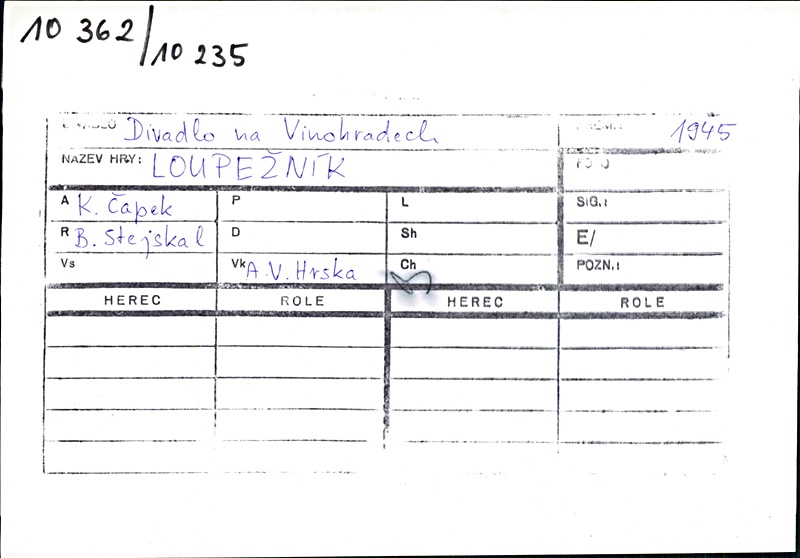 10 362/10 235
DIVADLO Divadlo na Vinohradech PREM.: 1945
NÁZEV HRY: LOUPEŽNÍK FOTO
A K. Čapek P L SIG.:
R B. Stejskal D Sh E/
Vs Vk A.V. Hrska Ch POZN.:
HEREC ROLE HEREC ROLE